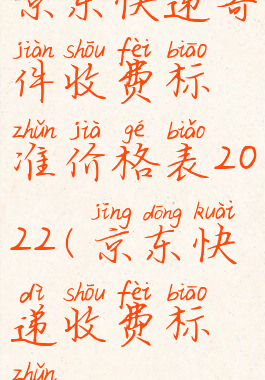 京东快递寄
jiàn shōu fèi biāo
件收费标
zhǔn jià gé biǎo
准价格表20
jīng dōng kuài
22(京东快
dì shōu fèi biāo
递收费标
zhǔn